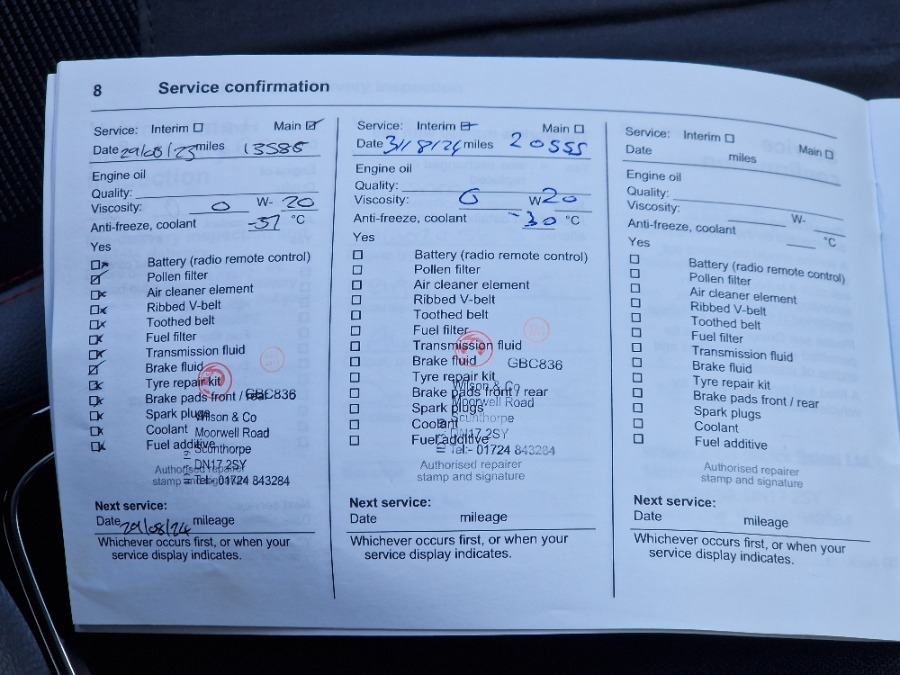 8 Service confirmation
Service: Interim Main
Date 29/08/23 miles 13586
Engine oil
Quality:
Viscosity: 0 W- 20
Anti-freeze, coolant -37 °C
Yes
Battery (radio remote control)
Pollen filter
Air cleaner element
Ribbed V-belt
Toothed belt
Fuel filter
Transmission fluid
Brake fluid
Tyre repair kit
Brake pads front / rear GBC836
Spark plugs Wilson & Co
Coolant Moorwell Road
Fuel additive Scunthorpe
DN17 2SY
Authorised repairer
stamp and Tel:- 01724 843284
Next service:
Date 29/08/24 mileage
Whichever occurs first, or when your
service display indicates.
Service: Interim Main
Date 31/8/24 miles 20555
Engine oil
Quality:
Viscosity: 0 W 20
Anti-freeze, coolant -30 °C
Yes
Battery (radio remote control)
Pollen filter
Air cleaner element
Ribbed V-belt
Toothed belt
Fuel filter
Transmission fluid
Brake fluid GBC836
Tyre repair kit
Wilson & Co
Brake pads front / rear
Moorwell Road
Spark plugs
Scunthorpe
Coolant
DN17 2SY
Fuel additive
Tel:- 01724 843284
Authorised repairer
stamp and signature
Next service:
Date mileage
Whichever occurs first, or when your
service display indicates.
Service: Interim Main
Date miles
Engine oil
Quality:
Viscosity: W-
Anti-freeze, coolant °C
Yes
Battery (radio remote control)
Pollen filter
Air cleaner element
Ribbed V-belt
Toothed belt
Fuel filter
Transmission fluid
Brake fluid
Tyre repair kit
Brake pads front / rear
Spark plugs
Coolant
Fuel additive
Authorised repairer
stamp and signature
Next service:
Date mileage
Whichever occurs first, or when your
service display indicates.